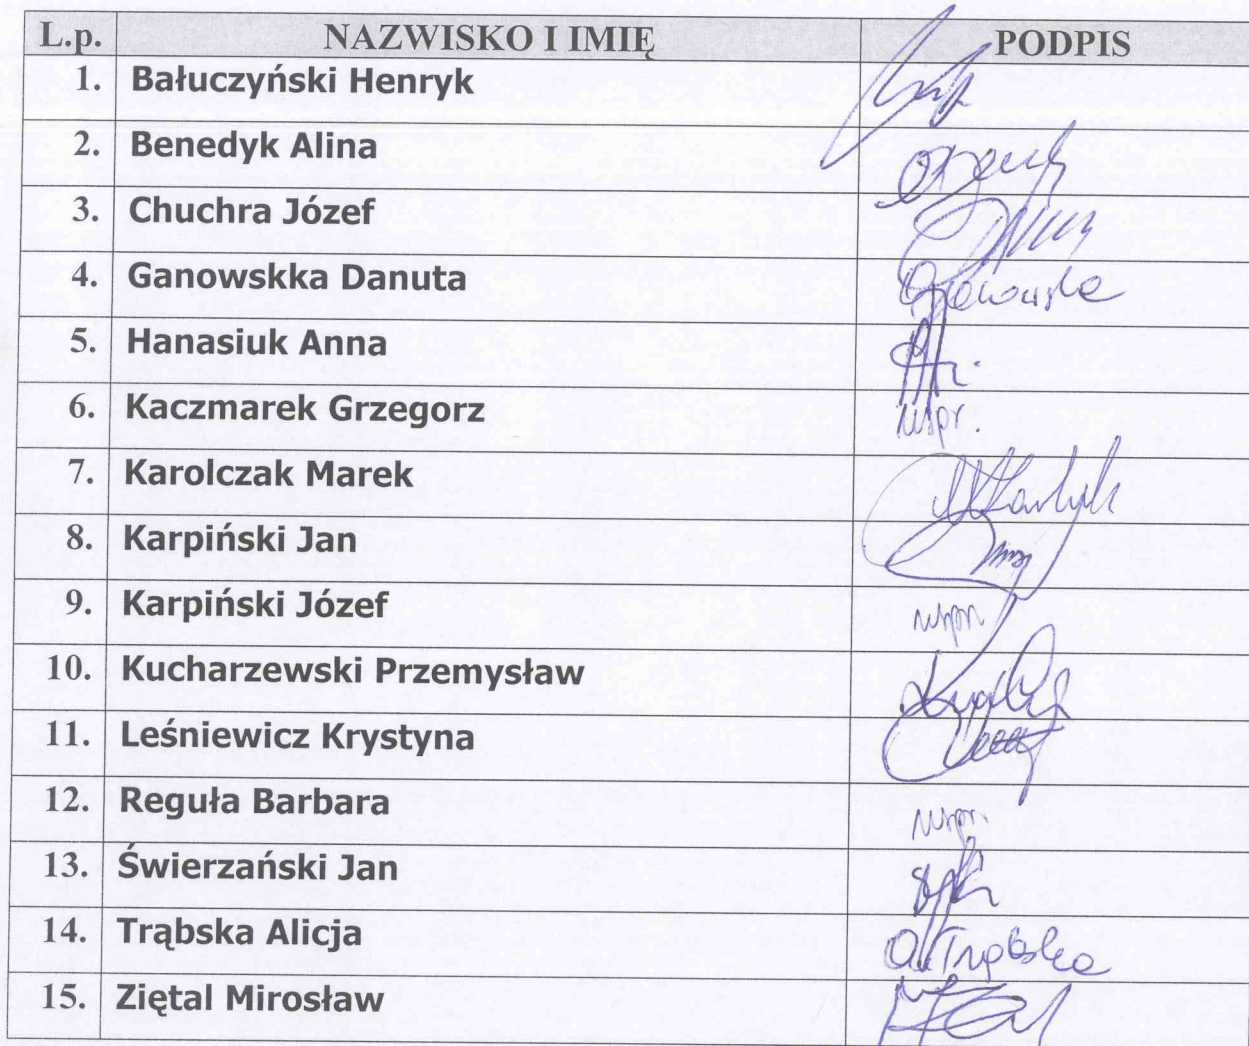 L.p. NAZWISKO I IMIĘ PODPIS
1. Bałuczyński Henryk
2. Benedyk Alina
3. Chuchra Józef
4. Ganowskka Danuta
5. Hanasiuk Anna
6. Kaczmarek Grzegorz uspr.
7. Karolczak Marek
8. Karpiński Jan
9. Karpiński Józef uspr.
10. Kucharzewski Przemysław
11. Leśniewicz Krystyna
12. Reguła Barbara uspr.
13. Świerzański Jan
14. Trąbska Alicja A. Trąbska
15. Ziętal Mirosław